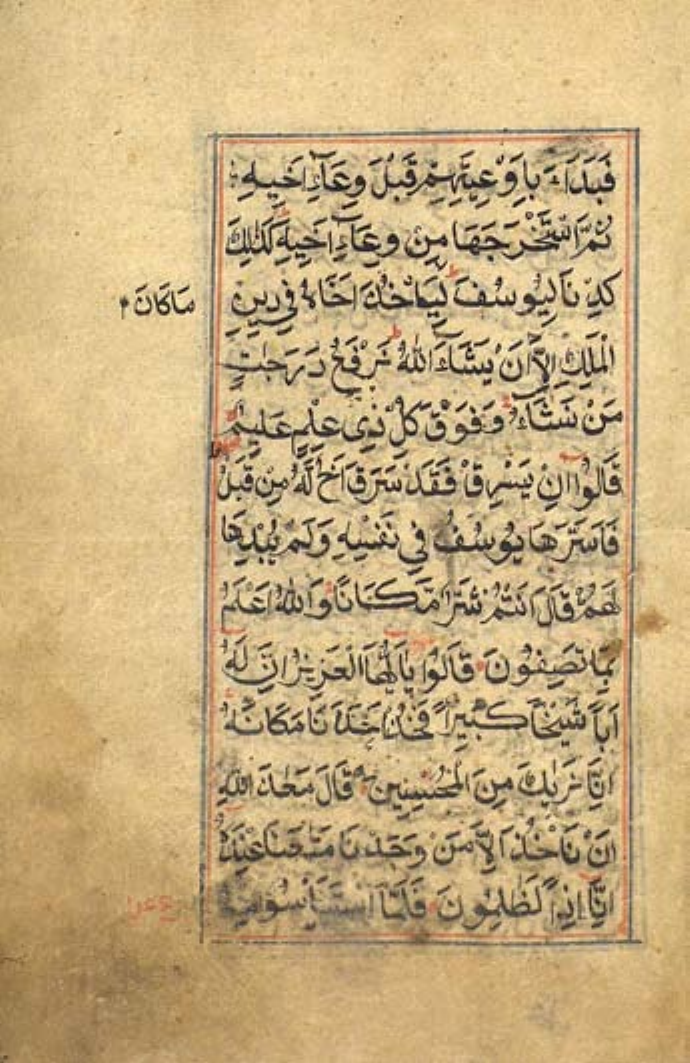 فَبَدَاءَ بِاَوْعِيَتِهِمْ قَبْلَ وِعَآءِ اَخِيهِ
ثُمَّ اسْتَخْرَجَهَا مِنْ وِعَآءِ اَخِيهِ كَذٰلِكَ
كِدْنَا لِيُوسُفَ لِيَاْخُذَ اَخَاهُ فِي دِينِ
مَاكَانَ
الْمَلِكِ اِلَّآ اَنْ يَشَآءَ اللهُ نَرْفَعُ دَرَجٰتٍ
مَنْ نَشَآءُ وَفَوْقَ كُلِّ ذِى عِلْمٍ عَلِيمٌ
قَالُوٓا اِنْ يَسْرِقْ فَقَدْ سَرَقَ اَخٌ لَهُ مِنْ قَبْلُ
فَاَسَرَّهَا يُوسُفُ فِي نَفْسِهِ وَلَمْ يُبْدِهَا
لَهُمْ قَالَ اَنْتُمْ شَرٌّ مَكَانًا وَاللهُ اَعْلَمُ
بِمَا تَصِفُونَ قَالُوا يَآاَيُّهَا الْعَزِيزُ اِنَّ لَهُ
اَبًا شَيْخًا كَبِيرًا فَخُذْ اَحَدَنَا مَكَانَهُ
اِنَّا نَرٰيكَ مِنَ الْمُحْسِنِينَ قَالَ مَعَاذَ اللهِ
اَنْ نَاْخُذَ اِلَّا مَنْ وَجَدْنَا مَتَاعَنَا عِنْدَهُ
اِنَّآ اِذًا لَظٰلِمُونَ فَلَمَّا اسْتَيْاَسُوا مِنْهُ